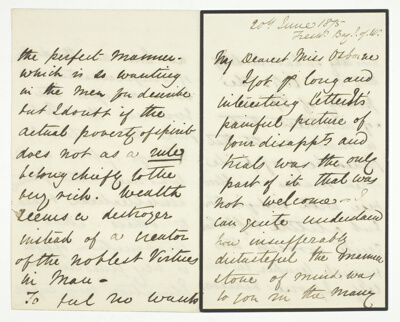 the perfect manner-
which is so wanting
in the men you describe
but I doubt if the
actual poverty of spirit
does not as a rule
belong chiefly to the
very rich. Wealth
seems a destroyer
instead of a creator
of the noblest Virtues
in Man-
To feel no wants
20th June 1875
My Dearest Miss Osborne
I got yr long and
interesting letter. Its
painful picture of
your disappts and
trials was the only
part of it that was
not welcome. I
can quite understand
how insufferably
distasteful the manner
& tone of mind was
to you in the many